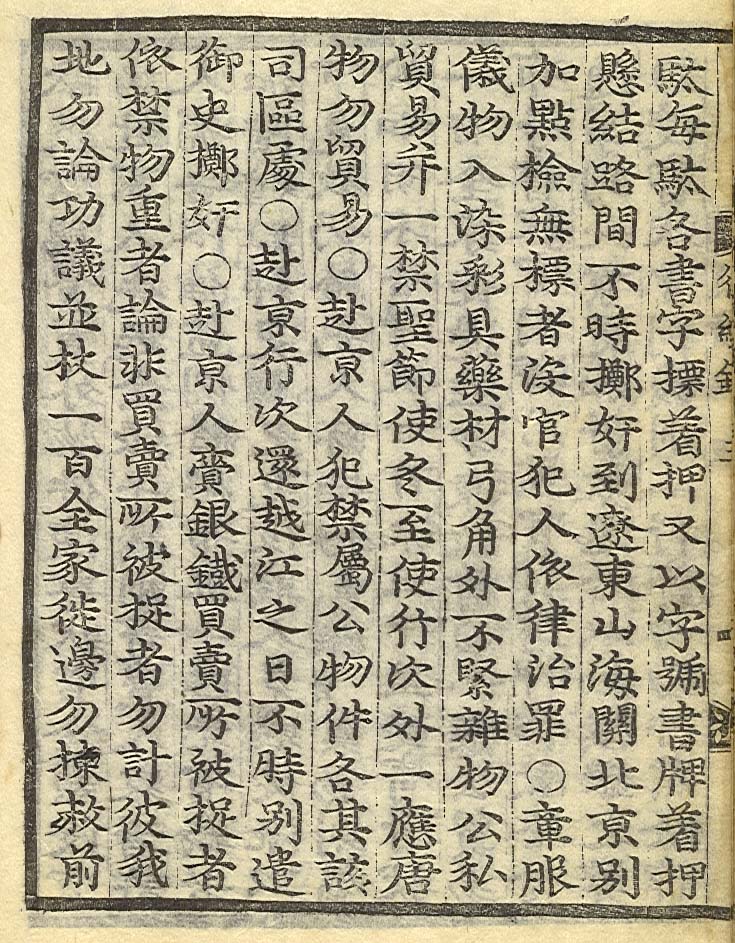 駄每駄各書字標着押又以字號書牌着押
懸結路間不時擲奸到遼東山海關北京別
加點檢無標者沒官犯人依律治罪○章服
儀物入染彩具藥材弓角外不緊雜物公私
貿易幷一禁聖節使冬至使行次外一應唐
物勿貿易○赴京人犯禁屬公物件各其該
司區處○赴京行次還越江之日不時別遣
御史擲奸○赴京人賫銀鐵買賣所被捉者
依禁物重者論非買賣所被捉者勿計彼我
地勿論功議並杖一百全家徙邊勿揀赦前
後續錄 三